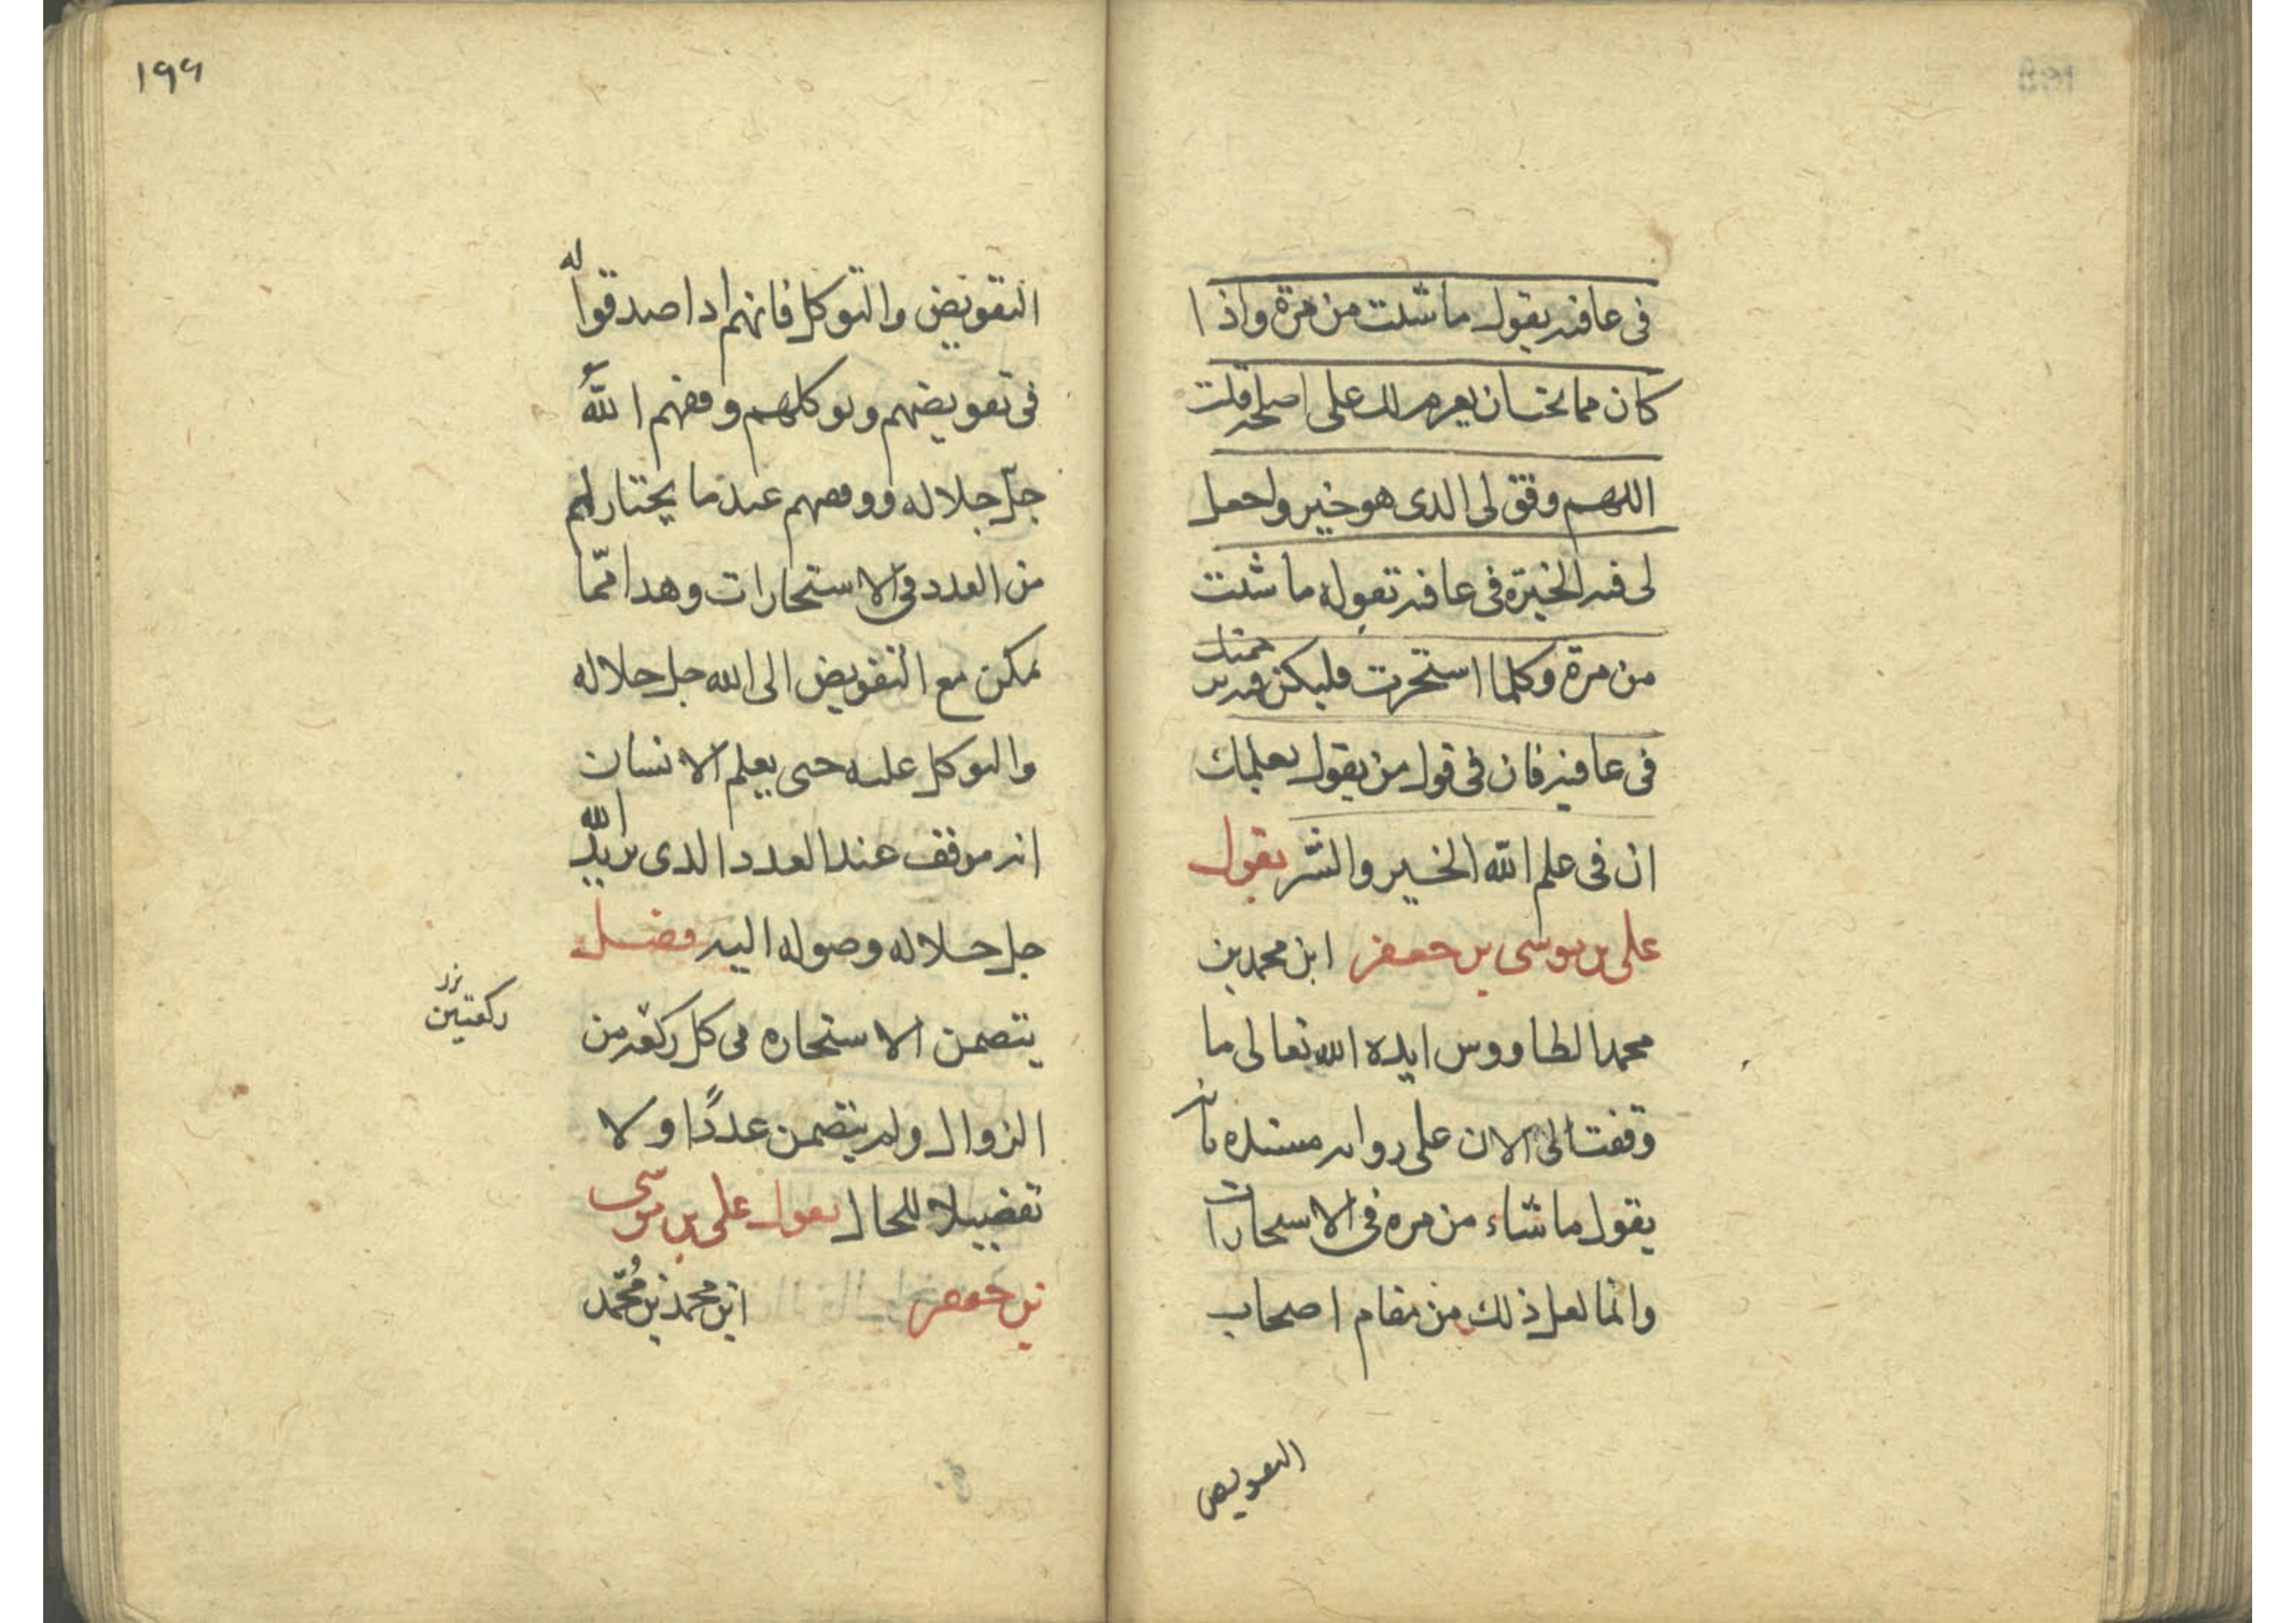 فى عافيه يقول ما شئت من مرة واذا
كان مما تحتسان يعزم لك على اصلحه قلت
اللهم وفق لى الذى هو خير واجعل
لى فيه الخيرة فى عافيه تقوله ما شئت
من مرة وكلما استخرت فليكن
فى عافيه فان فى قول من يقول بعلمك
ان فى علم الله الخير والشر يقول
على بن موسى بن جعفر ابن محمد بن
محمد الطاووس ايده الله تعالى ما
وقفت الى الان على روايه مسنده بانه
يقول ما شاء من مره فى الاستخارات
وانما لعل ذلك من مقام اصحاب
التفويض
١٩٩
التفويض والتوكل فانهم اذا صدقوا الله
فى تفويضهم وتوكلهم وفقهم الله
جل جلاله ووفقهم عند ما يختار لهم
من العدد فى الاستخارات وهذا ممّا
يمكن مع التفويض الى الله جل جلاله
والتوكل عليه حتى يعلم الانسان
انه موقف عند العدد الذى يريد الله
جل جلاله وصوله اليه فصل
يتضمن الاستخاره فى كل ركعه من
ركعتين
الزوال ولم يتضمن عددًا ولا
تفضيلا للحال يقول على بن موسى
بن جعفر ابن محمد بن مُحمّد